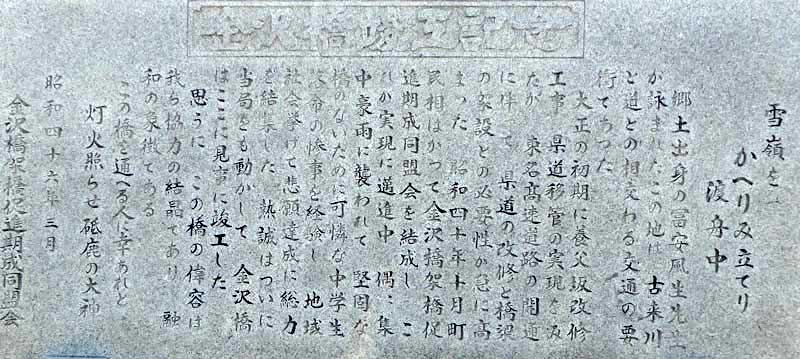 雪嶺を
かへりみ立てり
渡舟中
郷土出身の富安風生先生
が詠まれたこの地は 古来川
と道との相交わる交通の要
衝であった
大正の初期に養父坂改修
工事 県道移管の実現をみ
たが 東名高速道路の開通
に伴って 県道の改修と橋梁
の架設との必要性が急に高
まった 昭和四十年十月町
民相はかつて金沢橋架橋促
進期成同盟会を結成し こ
れが実現に邁進中 偶に集
中豪雨に襲われて 堅固な
橋のないために可憐な中学生
落命の惨事を経験し 地域
社会挙げて悲願達成に総力
を結集した 熱誠はついに
当局をも動かして 金沢橋
はここに見事に竣工した
思うに この橋の偉容は
我ら協力の結晶であり 融
和の象徴である
この橋を通へる人に幸あれと
灯火照らせ砥鹿の大神
昭和四十六年三月
金沢橋架橋促進期成同盟会